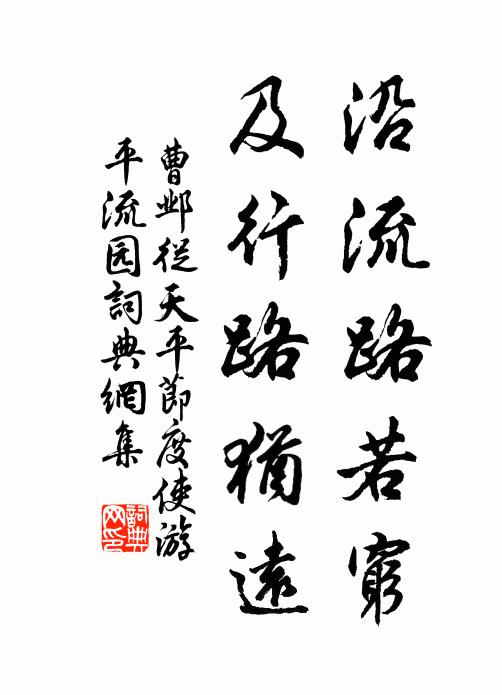 沿流路若穷
及行路猶遠
曹邺從天平節度使游
平流园詞典網集
詞典网印